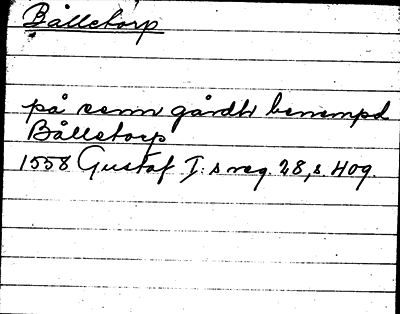 Bålletorp
på senn gårdh benempd
Bålletorp
1558 Gustaf I:s reg. 28, s. 409.